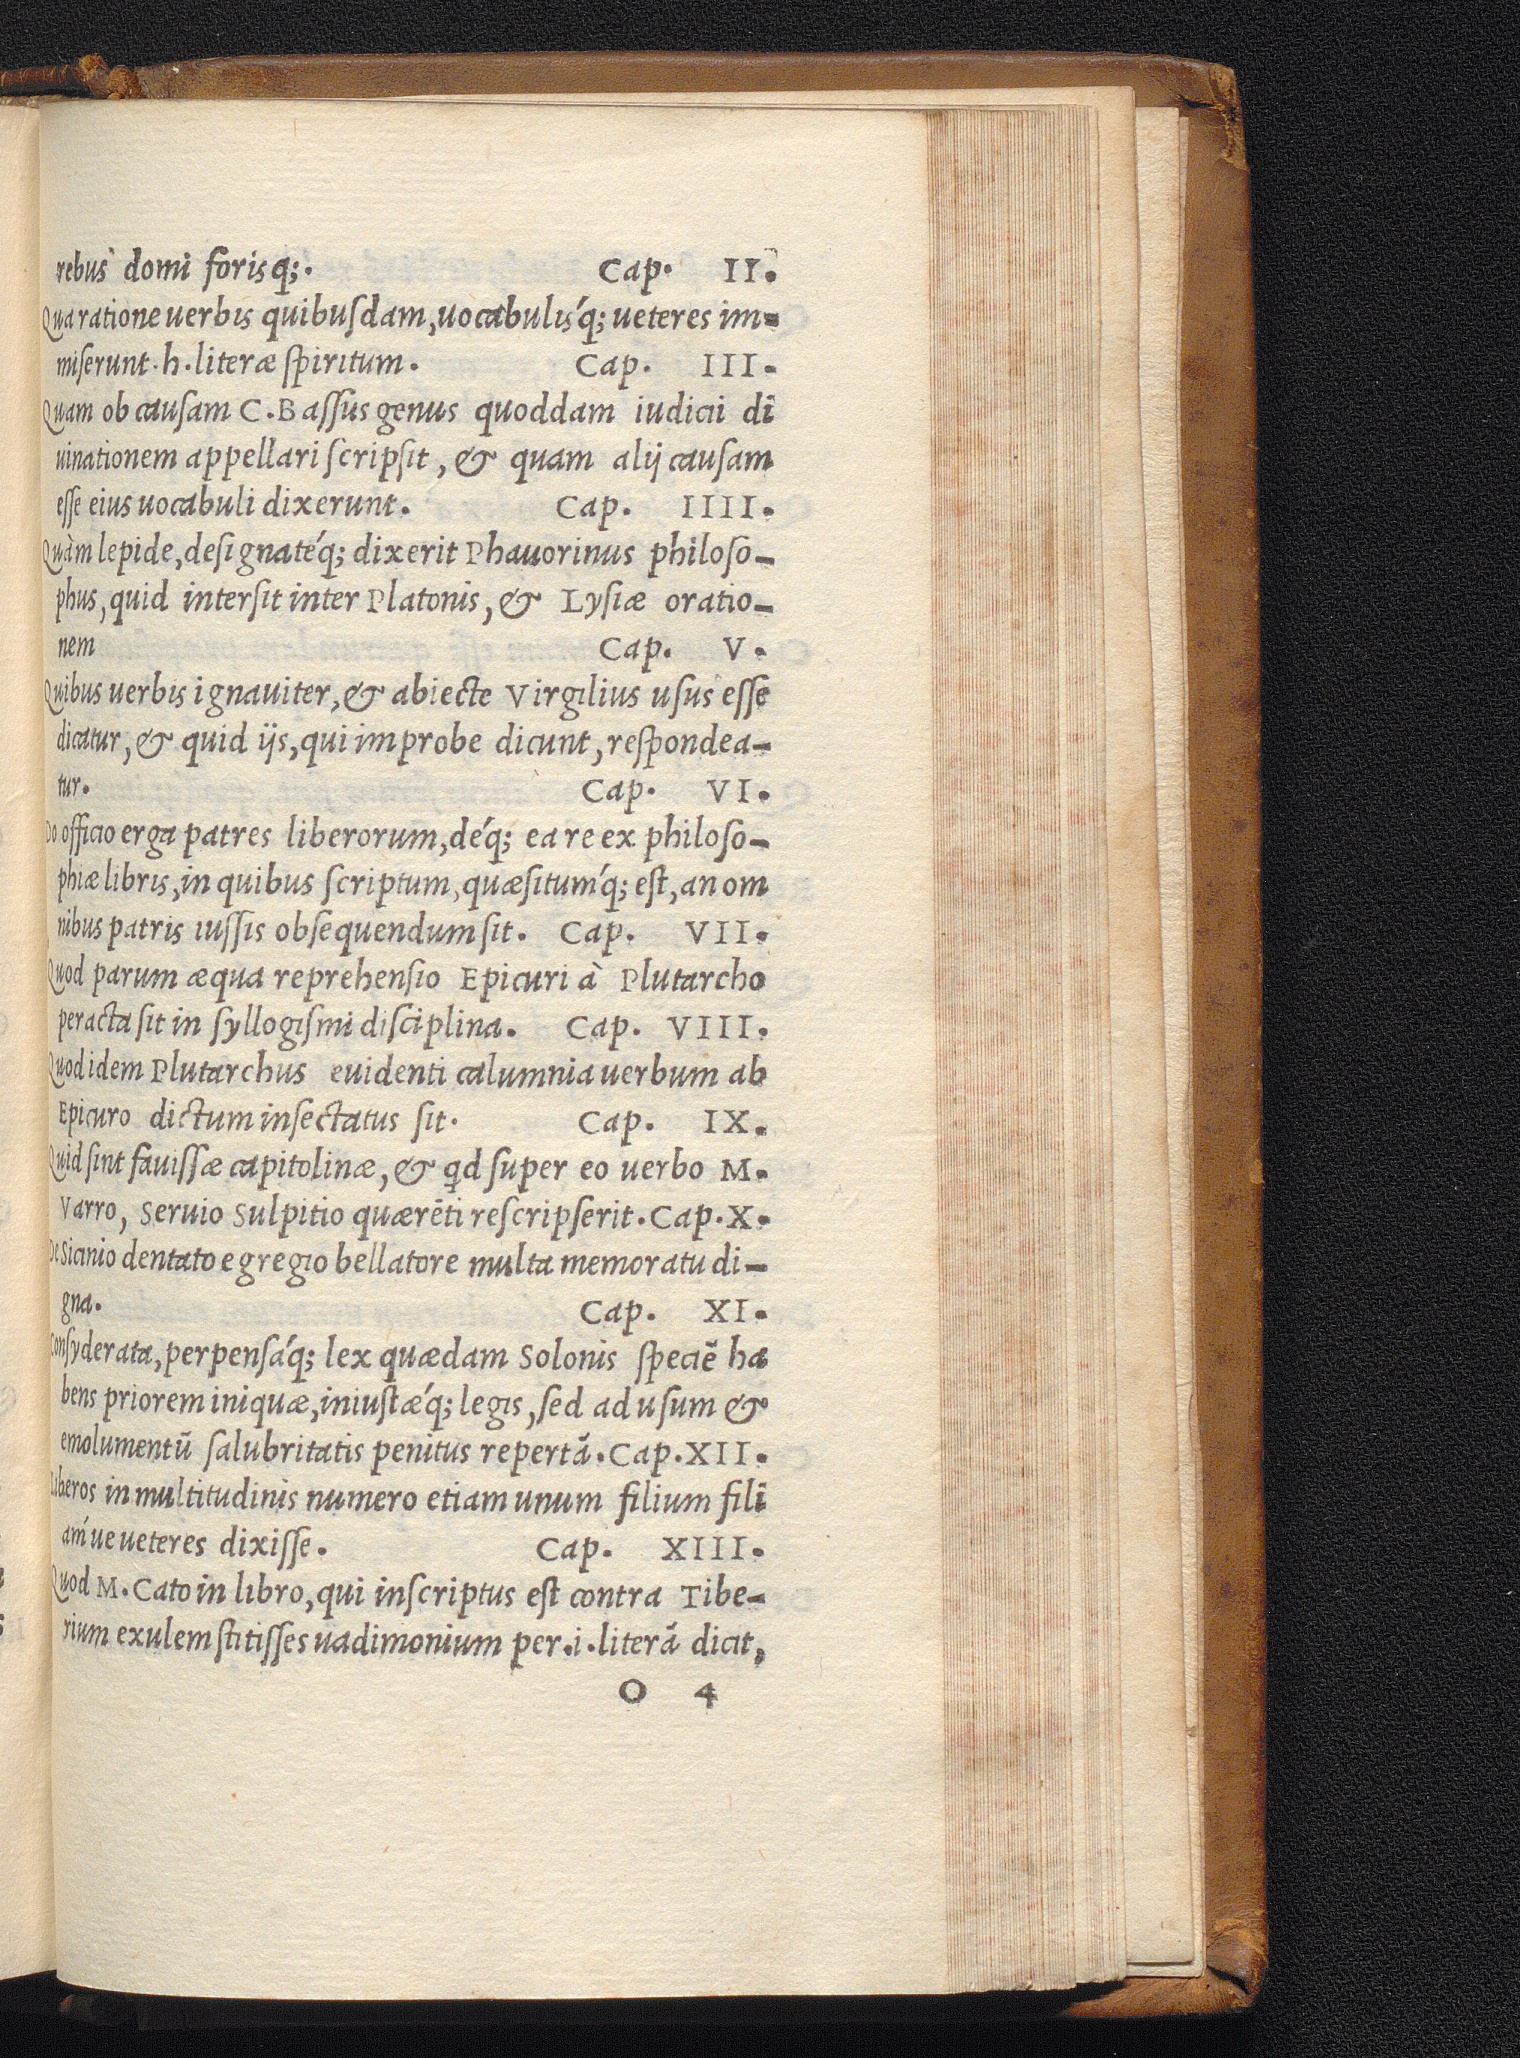 rebus domi forisq;. Cap. II.
Qua ratione uerbis quibusdam, uocabulis´q; ueteres im-
miserunt .h. literæ spiritum. Cap. III.
Quam ob causam C. Bassus genus quoddam iudicii di
uinationem appellari scripsit, & quam alij causam
esse eius uocabuli dixerunt. Cap. IIII.
Quàm lepide, designaté´q; dixerit Phauorinus philoso-
phus, quid intersit inter Platonis, & Lysiæ oratio-
nem Cap. V.
Quibus uerbis ignauiter, & abiecte Virgilius usus esse
dicatur, & quid ijs, qui improbe dicunt, respondea-
tur. Cap. VI.
Do officio erga patres liberorum, dé´q; ea re ex philoso-
phiæ libris, in quibus scriptum, quæsitum´q; est, an om
nibus patris iussis obsequendum sit. Cap. VII.
Quod parum æqua reprehensio Epicuri à Plutarcho
peracta sit in syllogismi disciplina. Cap. VIII.
Quod idem Plutarchus euidenti calumnia uerbum ab
Epicuro dictum insectatus sit. Cap. IX.
Quid sint fauissæ capitolinæ, & qd super eo uerbo M.
Varro, Seruio Sulpitio quærēti rescripserit. Cap. X.
De Sicinio dentato egregio bellatore multa memoratu di-
gna. Cap. XI.
Consyderata, perpensá´q; lex quædam Solonis speciē ha
bens priorem iniquæ, iniustæ´q; legis, sed ad usum &
emolumentū salubritatis penitus repertā. Cap. XII.
Liberos in multitudinis numero etiam unum filium fili
am´ue ueteres dixisse. Cap. XIII.
Quod M. Cato in libro, qui inscriptus est contra Tibe-
rium exulem stitisses uadimonium per .i. literā dicit,
O 4